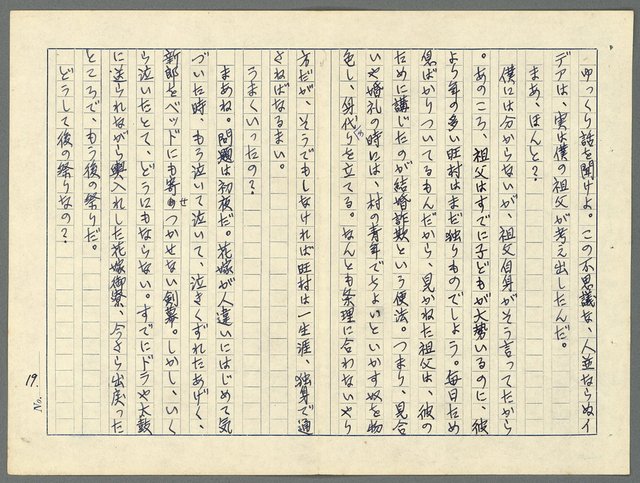 ゆっくり話を聞けよ。この不思議な、人並ならぬイ
デアは、実は僕の祖父が考え出したんだ。
まあ、ほんと?
僕には分からないが、祖父自身がそう言ってたから
。あのころ、祖父はすでに子どもが大勢いるのに、彼
より年の多い旺村はまだ独りものでしよう。毎日ため
息ばかりついてるもんだから、見かねた祖父は、彼の
ために講じたのが結婚詐欺という便法。つまり、見合
いや婚礼の時には、村の青年でちよいといかす奴を物
色し、身代りを立てる。なんとも条理に合わないやり
方だが、そうでもしなければ旺村は一生涯、独身で通
さねばなるまい。
うまくいったの?
まあね。問題は初夜だ。花嫁が人違いにはじめて気
づいた時、もう泣いて泣いて、泣きくずれたあげく、
新郎をベッドにも寄せつかせない剣幕。しかし、いく
ら泣いたとて、どうにもならない。すでにドラや太鼓
に送られながら輿入れした花嫁御寮、今さら出戻った
ところで、もう後の祭りだ。
どうして後の祭りなの?
No. 19